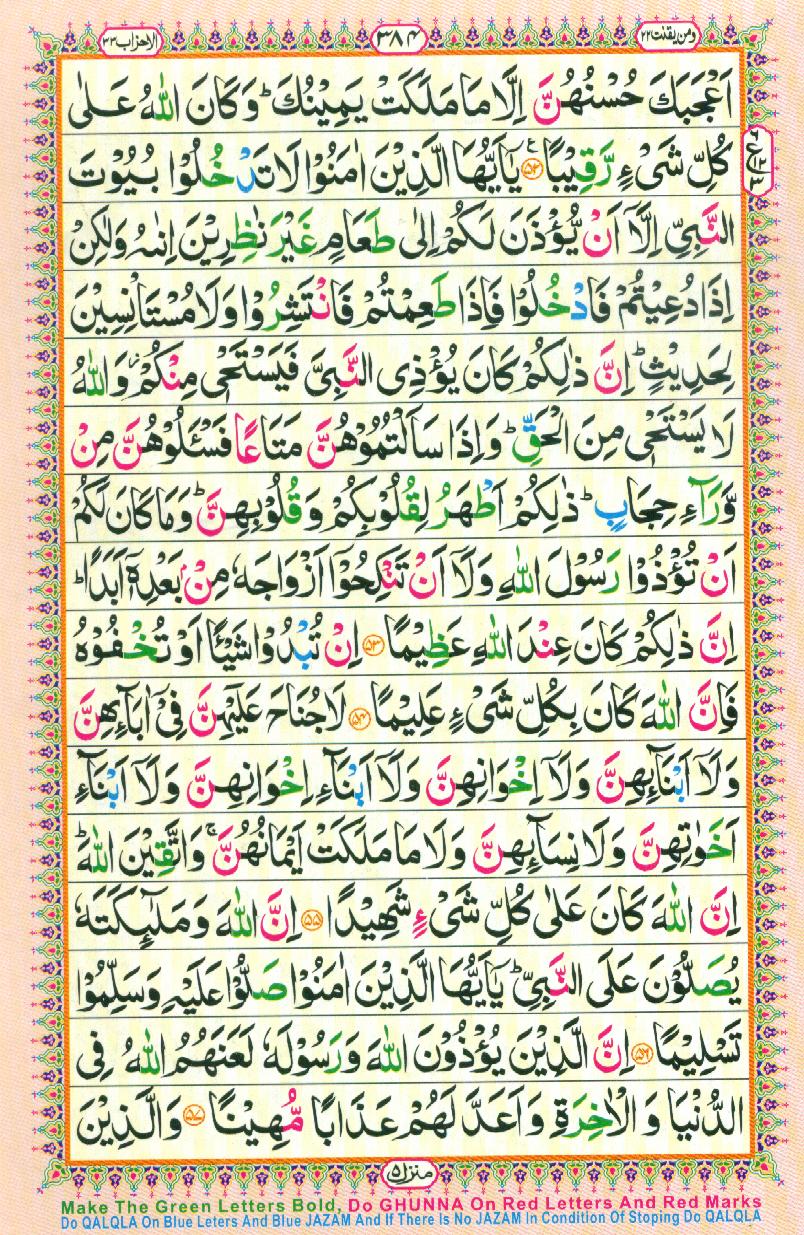 الاحزاب ٣٣ ٣٨٤ ومن یقنت ٢٢
اَعْجَبَكَ حُسْنُهُنَّ اِلَّا مَا مَلَكَتْ یَمِیْنُكَؕ وَكَانَ اللّٰهُ عَلٰی
كُلِّ شَیْءٍ رَّقِیْبًا۠ ﴿۵۲﴾ یٰۤاَیُّهَا الَّذِیْنَ اٰمَنُوْا لَا تَدْخُلُوْا بُیُوْتَ
النَّبِیِّ اِلَّاۤ اَنْ یُّؤْذَنَ لَكُمْ اِلٰی طَعَامٍ غَیْرَ نٰظِرِیْنَ اِنٰىهُ وَلٰكِنْ
اِذَا دُعِیْتُمْ فَادْخُلُوْا فَاِذَا طَعِمْتُمْ فَانْتَشِرُوْا وَلَا مُسْتَاْنِسِیْنَ
لِحَدِیْثٍؕ اِنَّ ذٰلِكُمْ كَانَ یُؤْذِی النَّبِیَّ فَیَسْتَحْیٖ مِنْكُمْؗ وَاللّٰهُ
لَا یَسْتَحْیٖ مِنَ الْحَقِّؕ وَاِذَا سَاَلْتُمُوْهُنَّ مَتَاعًا فَسْـَٔلُوْهُنَّ مِنْ
وَّرَآءِ حِجَابٍؕ ذٰلِكُمْ اَطْهَرُ لِقُلُوْبِكُمْ وَقُلُوْبِهِنَّؕ وَمَا كَانَ لَكُمْ
اَنْ تُؤْذُوْا رَسُوْلَ اللّٰهِ وَلَاۤ اَنْ تَنْكِحُوْۤا اَزْوَاجَهٗ مِنْۢ بَعْدِهٖۤ اَبَدًاؕ
اِنَّ ذٰلِكُمْ كَانَ عِنْدَ اللّٰهِ عَظِیْمًا ﴿۵۳﴾ اِنْ تُبْدُوْا شَیْـًٔا اَوْ تُخْفُوْهُ
فَاِنَّ اللّٰهَ كَانَ بِكُلِّ شَیْءٍ عَلِیْمًا ﴿۵۴﴾ لَا جُنَاحَ عَلَیْهِنَّ فِیْۤ اٰبَآىِٕهِنَّ
وَلَاۤ اَبْنَآىِٕهِنَّ وَلَاۤ اِخْوَانِهِنَّ وَلَاۤ اَبْنَآءِ اِخْوَانِهِنَّ وَلَاۤ اَبْنَآءِ
اَخَوٰتِهِنَّ وَلَا نِسَآىِٕهِنَّ وَلَا مَا مَلَكَتْ اَیْمَانُهُنَّۚ وَاتَّقِیْنَ اللّٰهَؕ
اِنَّ اللّٰهَ كَانَ عَلٰی كُلِّ شَیْءٍ شَهِیْدًا ﴿۵۵﴾ اِنَّ اللّٰهَ وَمَلٰٓىِٕكَتَهٗ
یُصَلُّوْنَ عَلَی النَّبِیِّؕ یٰۤاَیُّهَا الَّذِیْنَ اٰمَنُوْا صَلُّوْا عَلَیْهِ وَسَلِّمُوْا
تَسْلِیْمًا ﴿۵۶﴾ اِنَّ الَّذِیْنَ یُؤْذُوْنَ اللّٰهَ وَرَسُوْلَهٗ لَعَنَهُمُ اللّٰهُ فِی
الدُّنْیَا وَالْاٰخِرَةِ وَاَعَدَّ لَهُمْ عَذَابًا مُّهِیْنًا ﴿۵۷﴾ وَالَّذِیْنَ
منزل ۵
Make The Green Letters Bold, Do GHUNNA On Red Letters And Red Marks
Do QALQLA On Blue Leters And Blue JAZAM And If There Is No JAZAM In Condition Of Stoping Do QALQLA